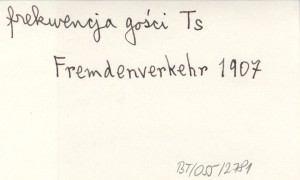 frekwencja gości Ts
Fremdenverkehr 1907
BT/055/2781